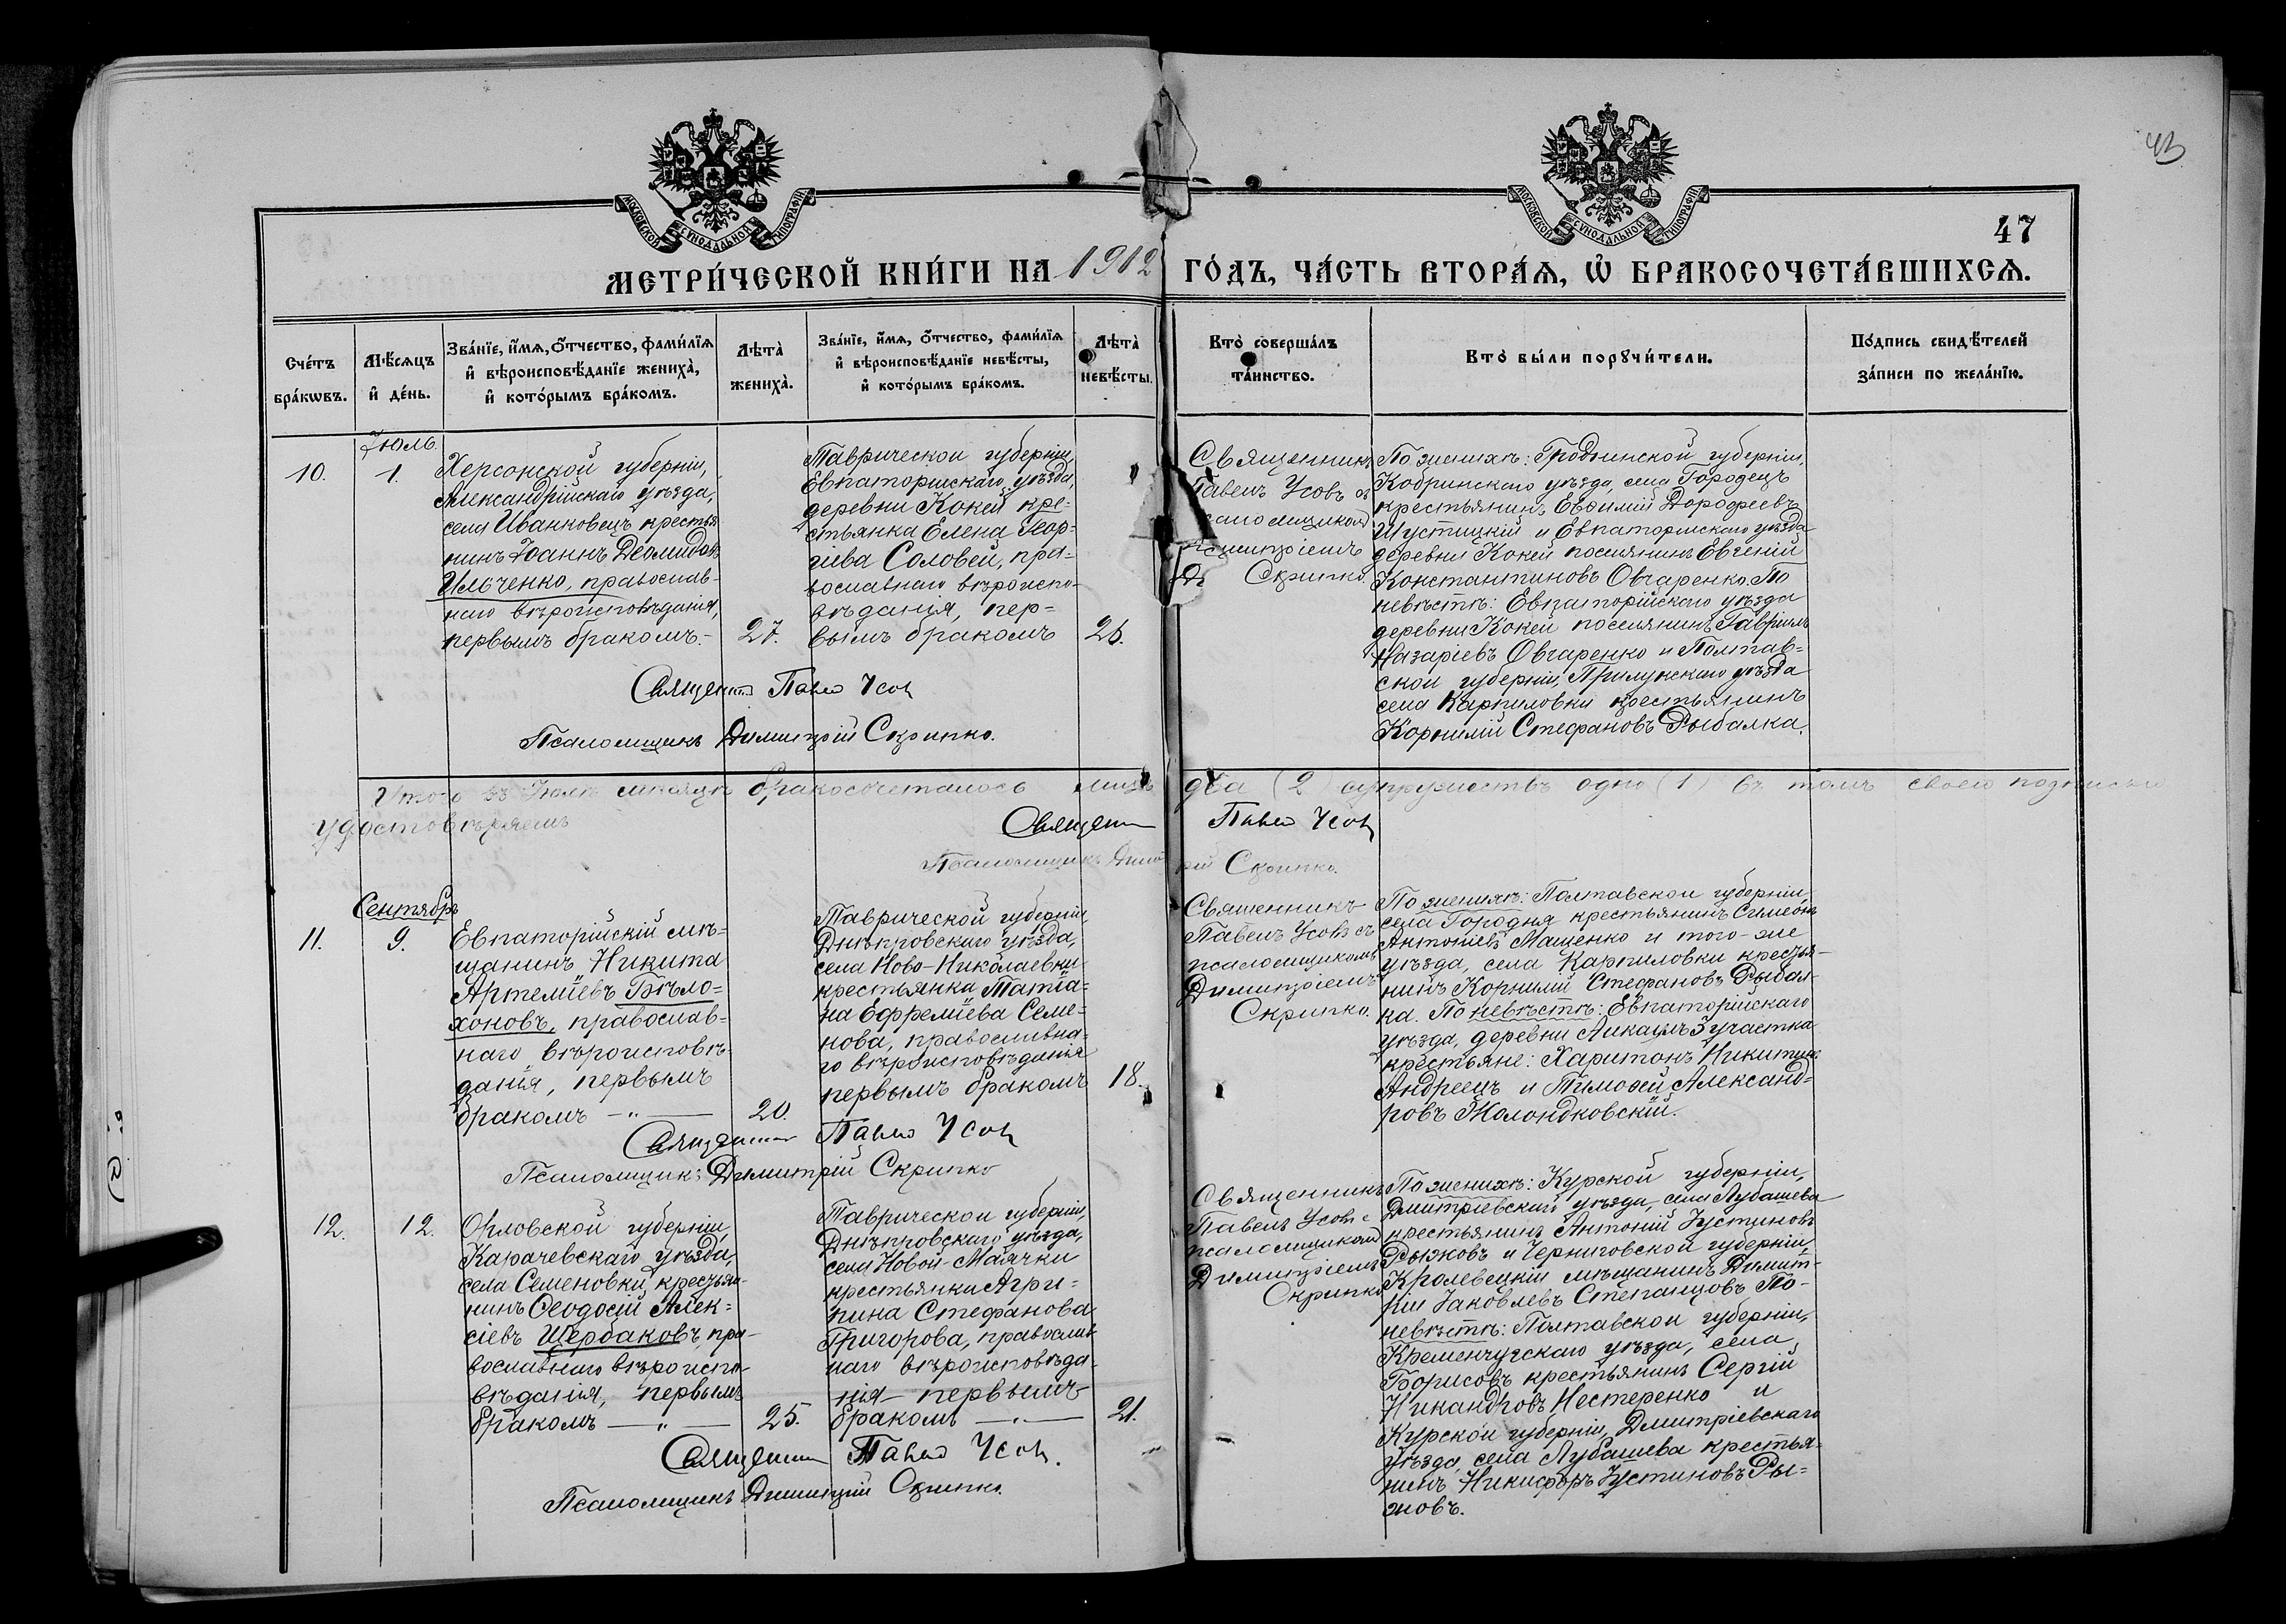 43
47
МОСКОВСКОЙ СУНОДАЛЬНОЙ ТИПОГРАФІИ
МОСКОВСКОЙ СУНОДАЛЬНОЙ ТИПОГРАФІИ
МЕТРИ́ЧЕСКОЙ КНИ́ГИ НА 1912 ГО́ДЪ, ЧА́СТЬ ВТОРА́Ѧ, Ѽ БРАКОСОЧЕТА́ВШИХСѦ.
Сче́тъ
бра́кѡвъ.
Мѣ́сяцъ
и҆ де́нь.
Зва́нїе, и҆́мѧ, ѻ҆́тчество, фами́лїѧ
и҆ вѣроисповѣ́данїе жениха̀,
и҆ кото́рымъ бра́комъ.
Лѣта̀
жениха̀.
Зва́нїе, и҆́мѧ, ѻ҆́тчество, фами́лїѧ
и҆ вѣроисповѣ́данїе невѣ́сты,
и҆ кото́рымъ бра́комъ.
Лѣта̀
невѣ́сты.
Кто̀ соверша́лъ
та́инство.
Кто̀ бы́ли порꙋчи́тели.
По́дпись свидѣ́телей
за́писи по жела́нїю.
Іюль.
10.
1.
Херсонской губерніи,
Александрійскаго уѣзда,
села Иванковецъ крестья
нинъ Іоаннъ Деомидовъ
Ильченко, православ-
наго вѣроисповѣданія,
первымъ бракомъ.-
27.
Таврической губерніи,
Евпаторійскаго уѣзда,
деревни Кокей кре-
стьянка Елена Геор-
гіева Соловей, пра-
вославнаго вѣроиспо-
вѣданія, пер-
вымъ бракомъ
26.
Священникъ
Павелъ Усовъ съ
псаломщикомъ
Димитріемъ
Скрипко.
По женихѣ: Гродненской губерніи,
Кобринскаго уѣзда, села Городецъ
крестьянинъ Евѳимій Дороѳеевъ
Шустицкій и Евпаторійскаго уѣзда
деревни Кокей поселянинъ Евгеній
Константиновъ Овчаренко. По
невѣстѣ: Евпаторійскаго уѣзда
деревни Кокей поселянинъ Гавріилъ
Назаріевъ Овчаренко и Полтав-
ской губерніи, Прилукскаго уѣзда
села Карпиловки крестьянинъ
Корнилій Стефановъ Рыбалка.
Священникъ Павелъ Усовъ
Псаломщикъ Димитрій Скрипко.
Итого въ Іюлѣ мѣсяцѣ бракосочеталось лицъ два (2) супружествъ одно (1) въ томъ своею подписью
удостовѣряемъ
Священникъ Павелъ Усовъ
Псаломщикъ Димитрій Скрипко.
Сентябрь
11.
9.
Евпаторійскій мѣ-
щанинъ Никита
Артеміевъ Бѣло-
хоновъ, православ-
наго вѣроисповѣ-
данія, первымъ
бракомъ — „ —
20.
Таврической губерніи
Днѣпровскаго уѣзда,
села Ново-Николаевки
крестьянка Татіа-
на Ефреміева Семе-
нова, православна-
го вѣроисповѣданія
первымъ бракомъ
18.
Священникъ
Павелъ Усовъ съ
псаломщикомъ
Димитріемъ
Скрипко.
По женихѣ: Полтавской губерніи,
села Городня крестьянинъ Симеонъ
Антоніевъ Мащенко и того-же
уѣзда, села Карпиловки крестья-
нинъ Корнилій Стефановъ Рыбал-
ка. По невѣстѣ: Евпаторійскаго
уѣзда, деревни Аикаулъ 3 участка
крестьяне: Харитонъ Никитинъ
Андреецъ и Тимоѳей Александ-
ровъ Жолондковскій.
Священникъ Павелъ Усовъ
Псаломщикъ Димитрій Скрипко
12.
12.
Орловской губерніи,
Карачевскаго уѣзда,
села Семеновки, крестья-
нинъ Ѳеодосій Алек-
сіевъ Щербаковъ, пра-
вославнаго вѣроиспо-
вѣданія, первымъ
бракомъ — „ —
25.
Таврической губерніи,
Днѣпровскаго уѣзда,
села Новой-Маячки
крестьянка Агри-
пина Стефанова
Григорова, православ-
наго вѣроисповѣда-
нія первымъ
бракомъ — „ —
21.
Священникъ
Павелъ Усовъ с
псаломщикомъ
Димитріемъ
Скрипко
По женихѣ: Курской губерніи,
Дмитріевскаго уѣзда, села Лубашева
крестьянинъ Антоній Іустиновъ
Рыжковъ и Черниговской губерніи,
Кролевецкій мѣщанинъ Димит-
рій Іаковлевъ Степанцовъ По-
невѣстѣ: Полтавской губерніи,
Кременчугскаго уѣзда, села
Борисовъ крестьянинъ Сергій
Никандровъ Нестеренко и
Курской губерніи, Дмитріевскаго
уѣзда, села Лубашева крестья-
нинъ Никифоръ Іустиновъ Ры-
жовъ.
Священникъ Павелъ Усовъ.
Псаломщикъ Димитрій Скрипко.